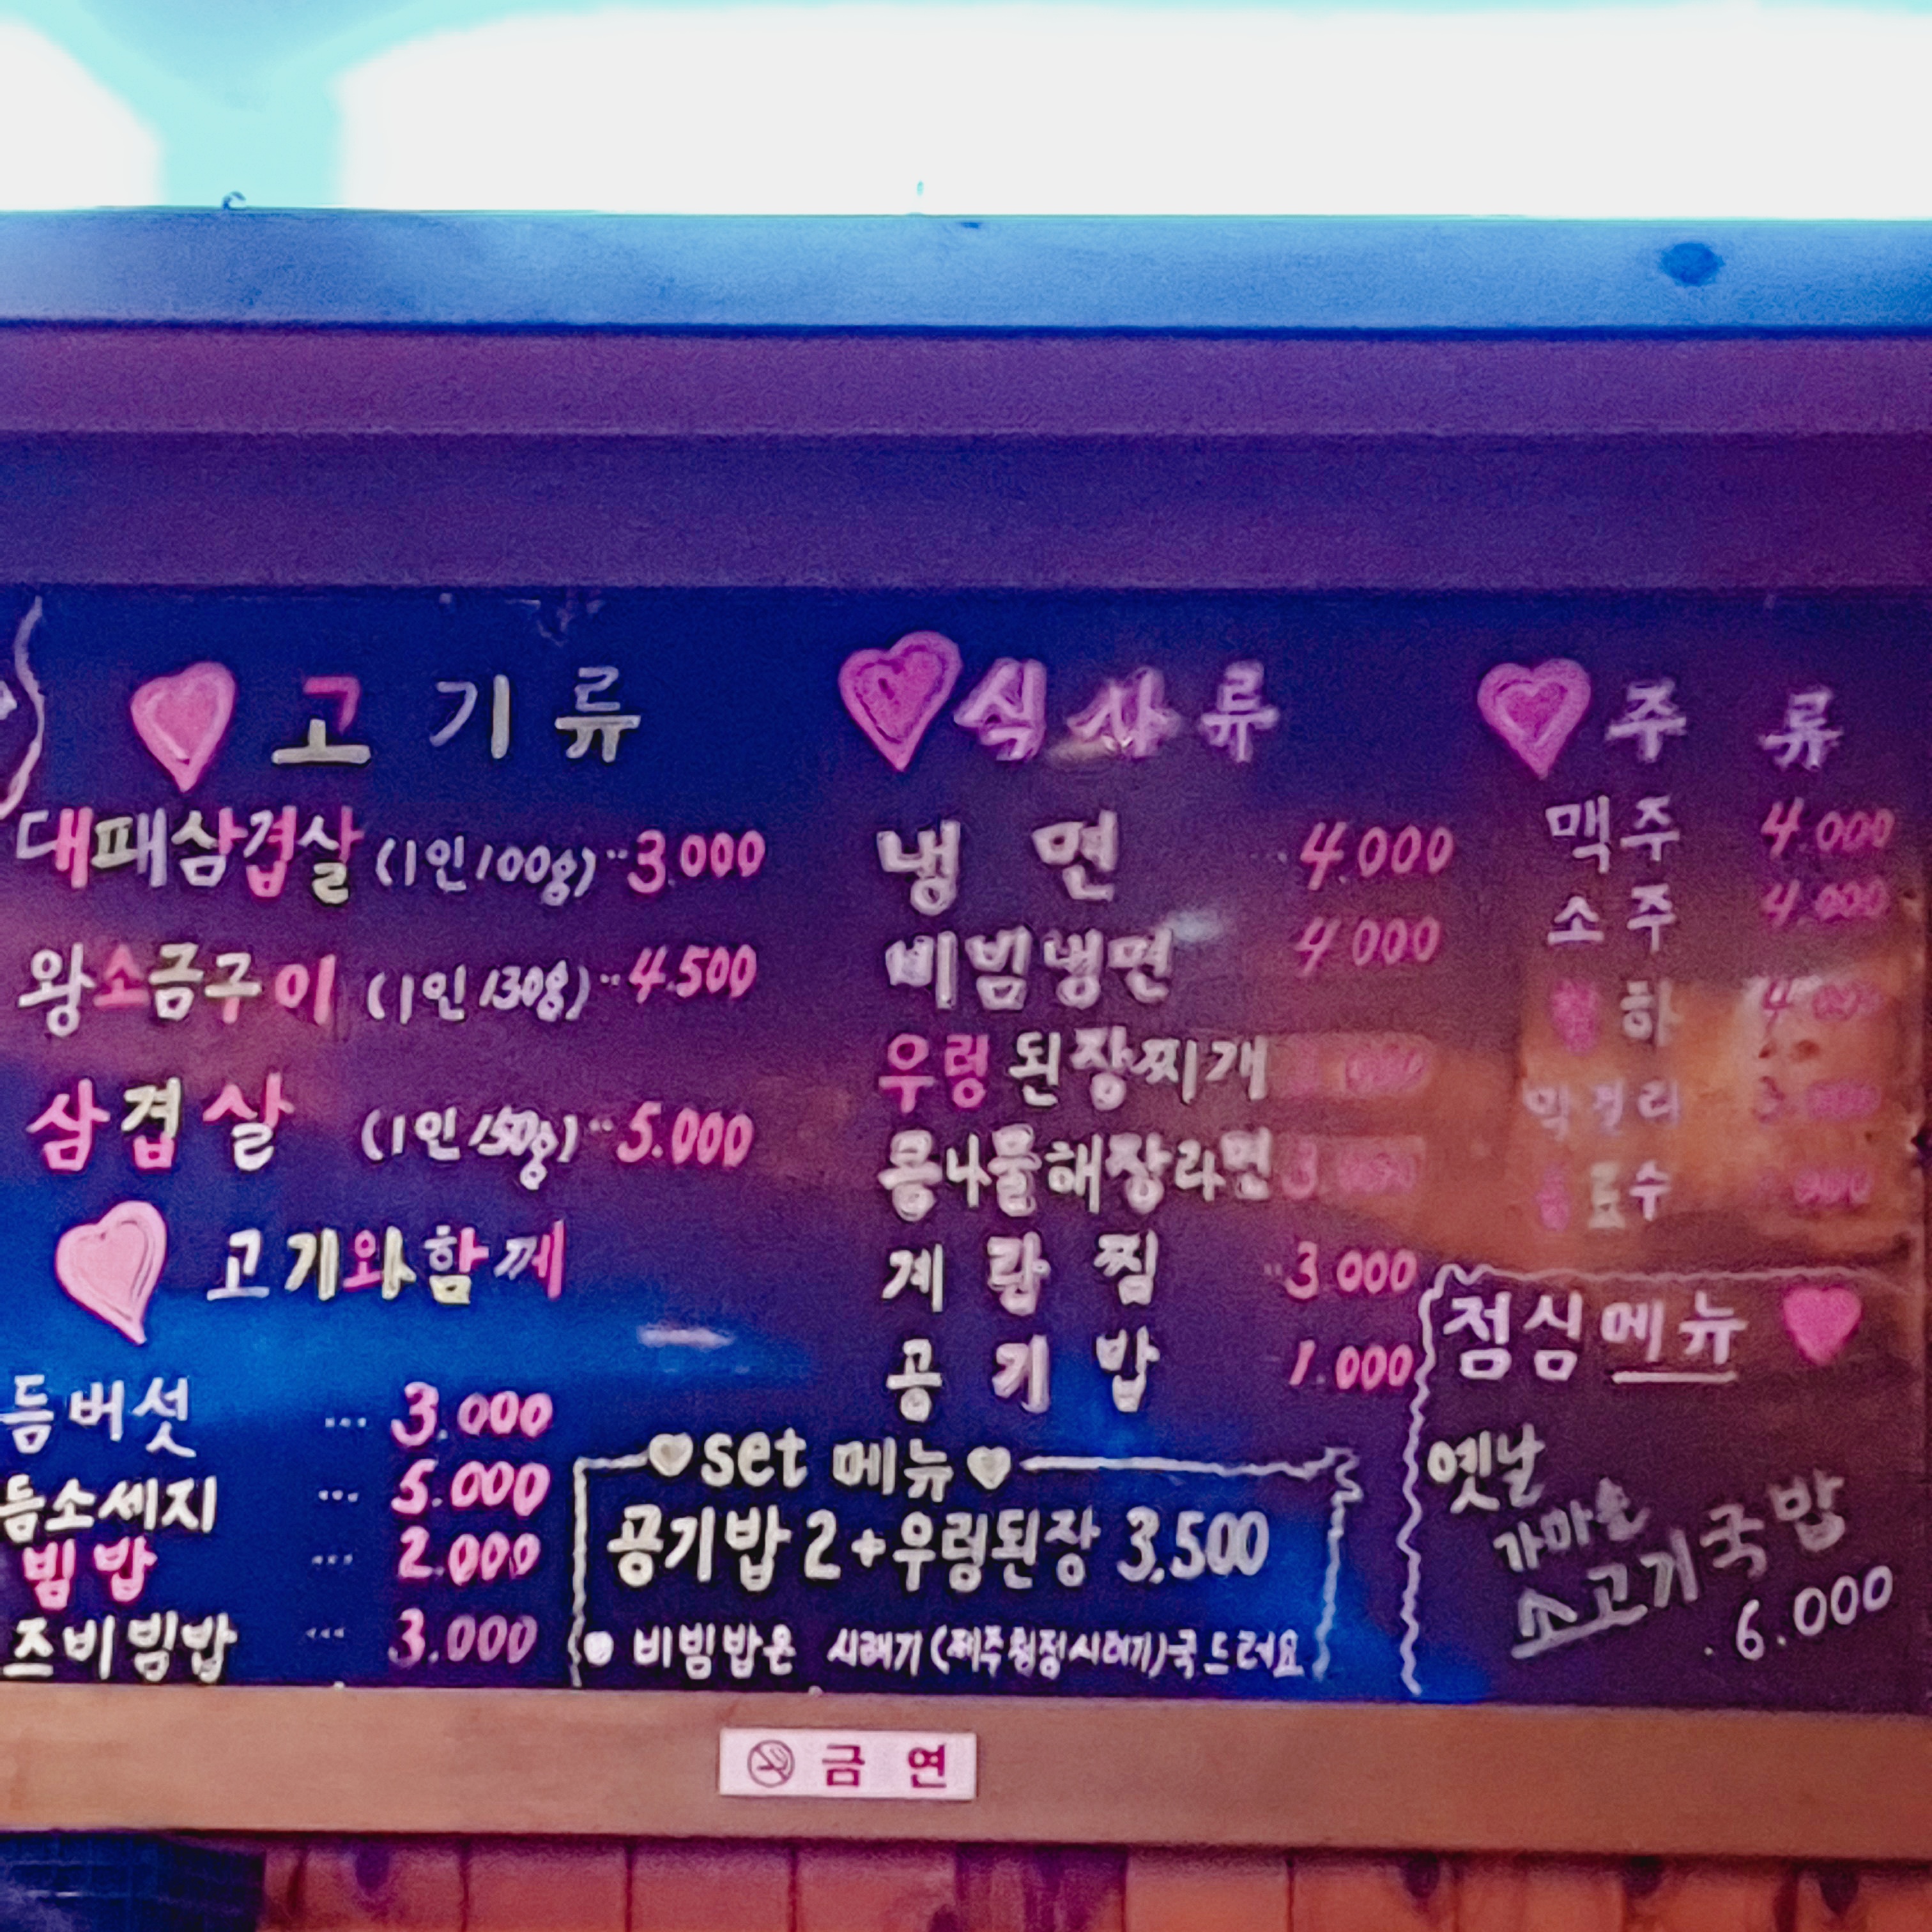 고기류
대패삼겹살 (1인/100g) ·· 3.000
왕소금구이 (1인/130g) ·· 4.500
삼겹살 (1인/150g) ·· 5.000
고기와함께
듬버섯 ... 3.000
듬소세지 ... 5.000
빔밥 ... 2.000
즈비빔밥 ... 3.000
식사류
냉면 4.000
비빔냉면 4.000
우렁된장찌개
콩나물해장라면 3.000
계란찜 3.000
공기밥 1.000
set 메뉴
공기밥 2+우렁된장 3.500
• 비빔밥은 시래기(제주청정시래기)국 드려요
주류
맥주 4.000
소주 4.000
하
막걸리
음료수
점심메뉴
옛날
가마솥
소고기국밥
6.000
금연